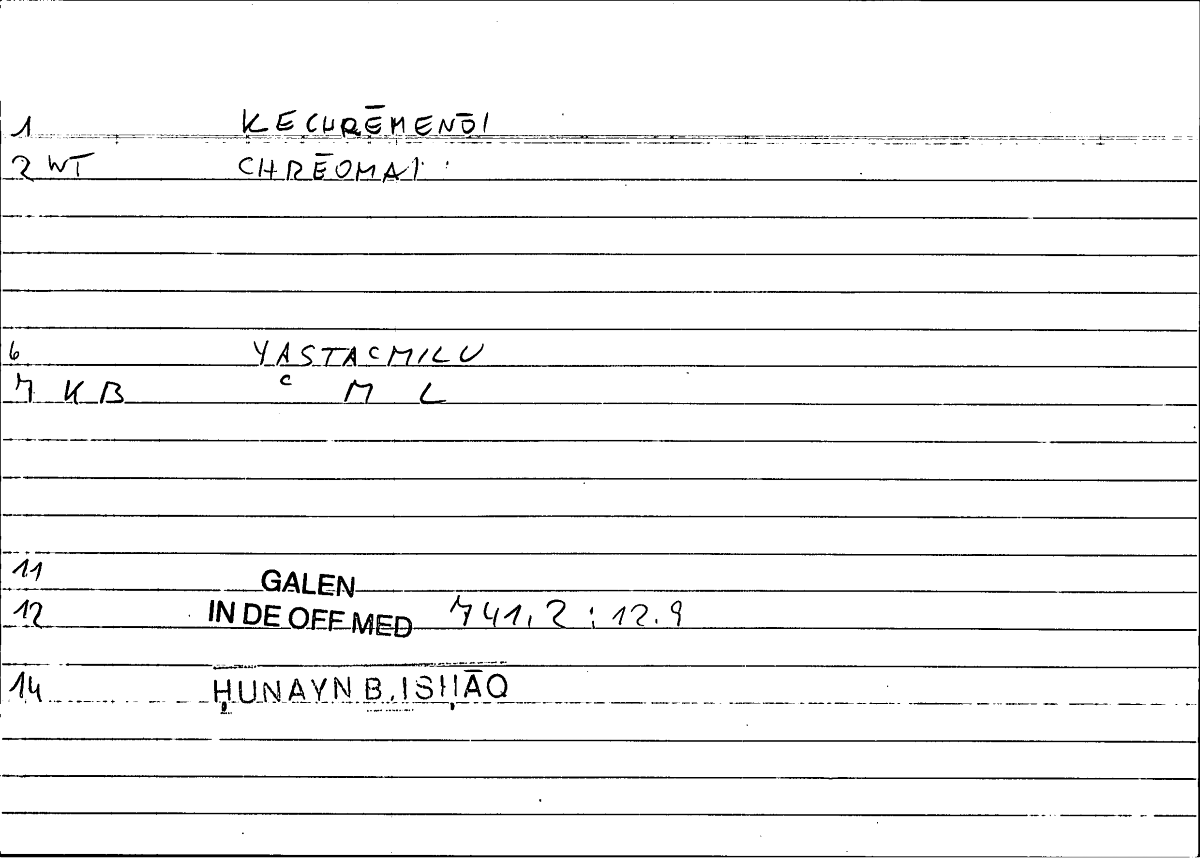 1 KECHRĒMENŌI
2 WT CHRĒOMAI
6 YASTAcMILU
7 KB c M L
11 GALEN
12 IN DE OFF MED 741.2 : 12.9
14 ḤUNAYN B. ISḤĀQ